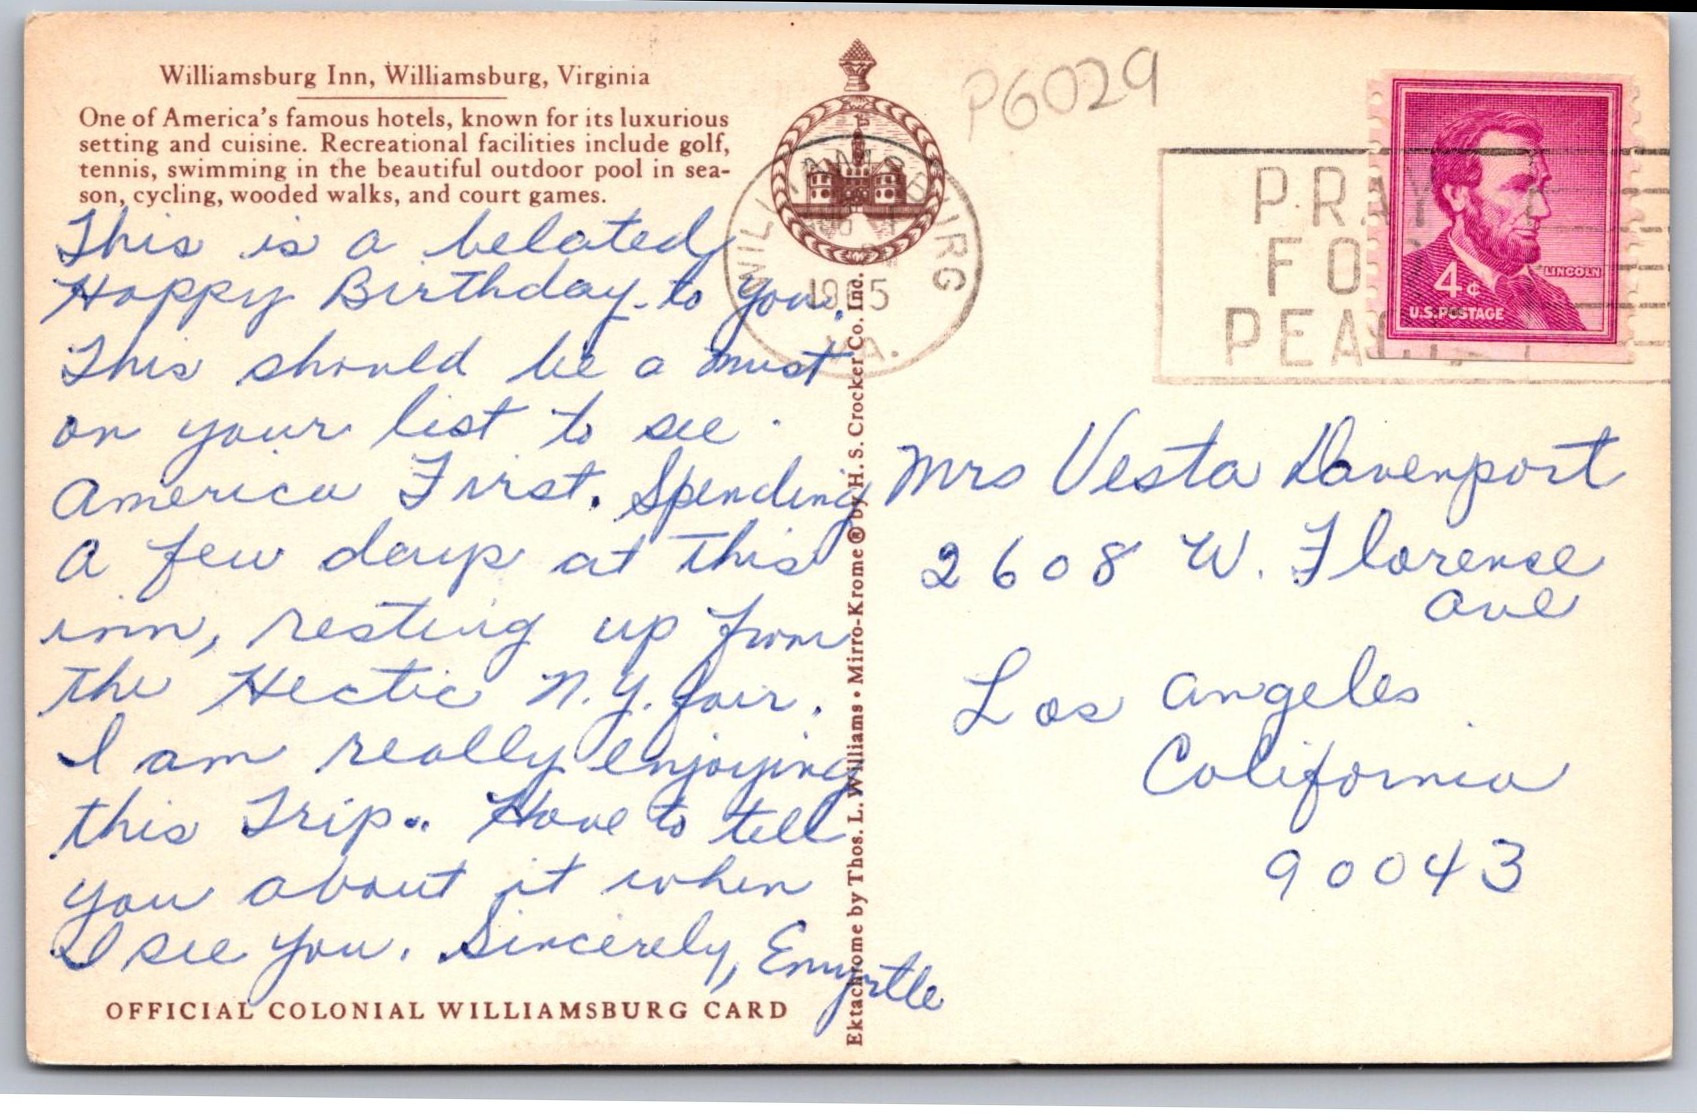 Williamsburg Inn, Williamsburg, Virginia
One of America's famous hotels, known for its luxurious
setting and cuisine. Recreational facilities include golf,
tennis, swimming in the beautiful outdoor pool in sea-
son, cycling, wooded walks, and court games.
This is a belated
Happy Birthday to you.
This should be a must
on your list to see
America First. Spending
a few days at this
inn, resting up from
the Hectic N.Y. fair.
I am really enjoying
this Trip.. Have to tell
you about it when
I see you. Sincerely, Emyrtle
OFFICIAL COLONIAL WILLIAMSBURG CARD
Ektachrome by Thos. L. Williams • Mirro-Krome® by H. S. Crocker Co. Inc.
P6029
WILLIAMSBURG
VA.
PRAY
FOR
PEACE
LINCOLN
4¢
U.S. POSTAGE
Mrs Vesta Davenport
2608 W. Florence
Ave
Los Angeles
California
90043